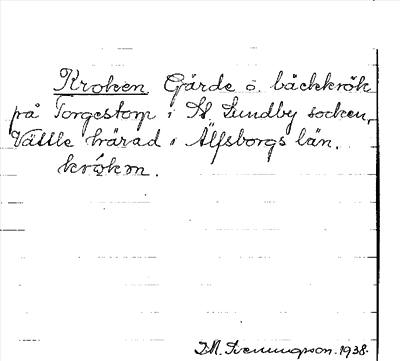 Kroken Gärde o. bäckkrök
på Torgestorp i St. Lundby socken,
Vättle härad i Älfsborgs län.
krókm.
1938.